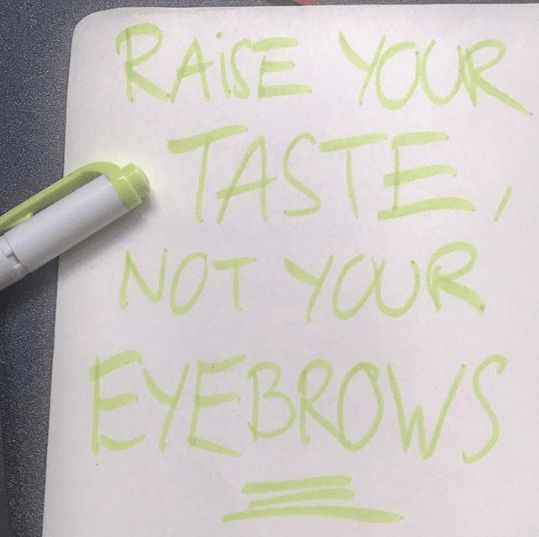 RAiSE YOUR
TASTE,
NOT YOUR
EYEBROWS